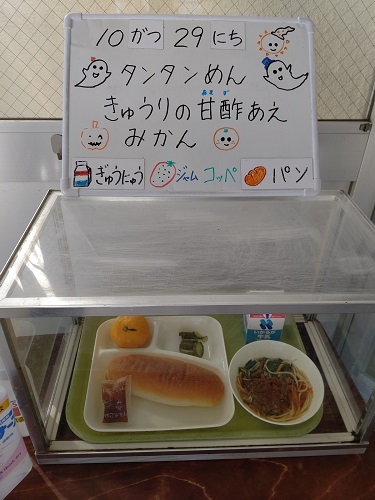 10がつ29にち
タンタンめん
きゅうりの甘酢あえ
みかん
ぎゅうにゅう ジャム コッペ パン